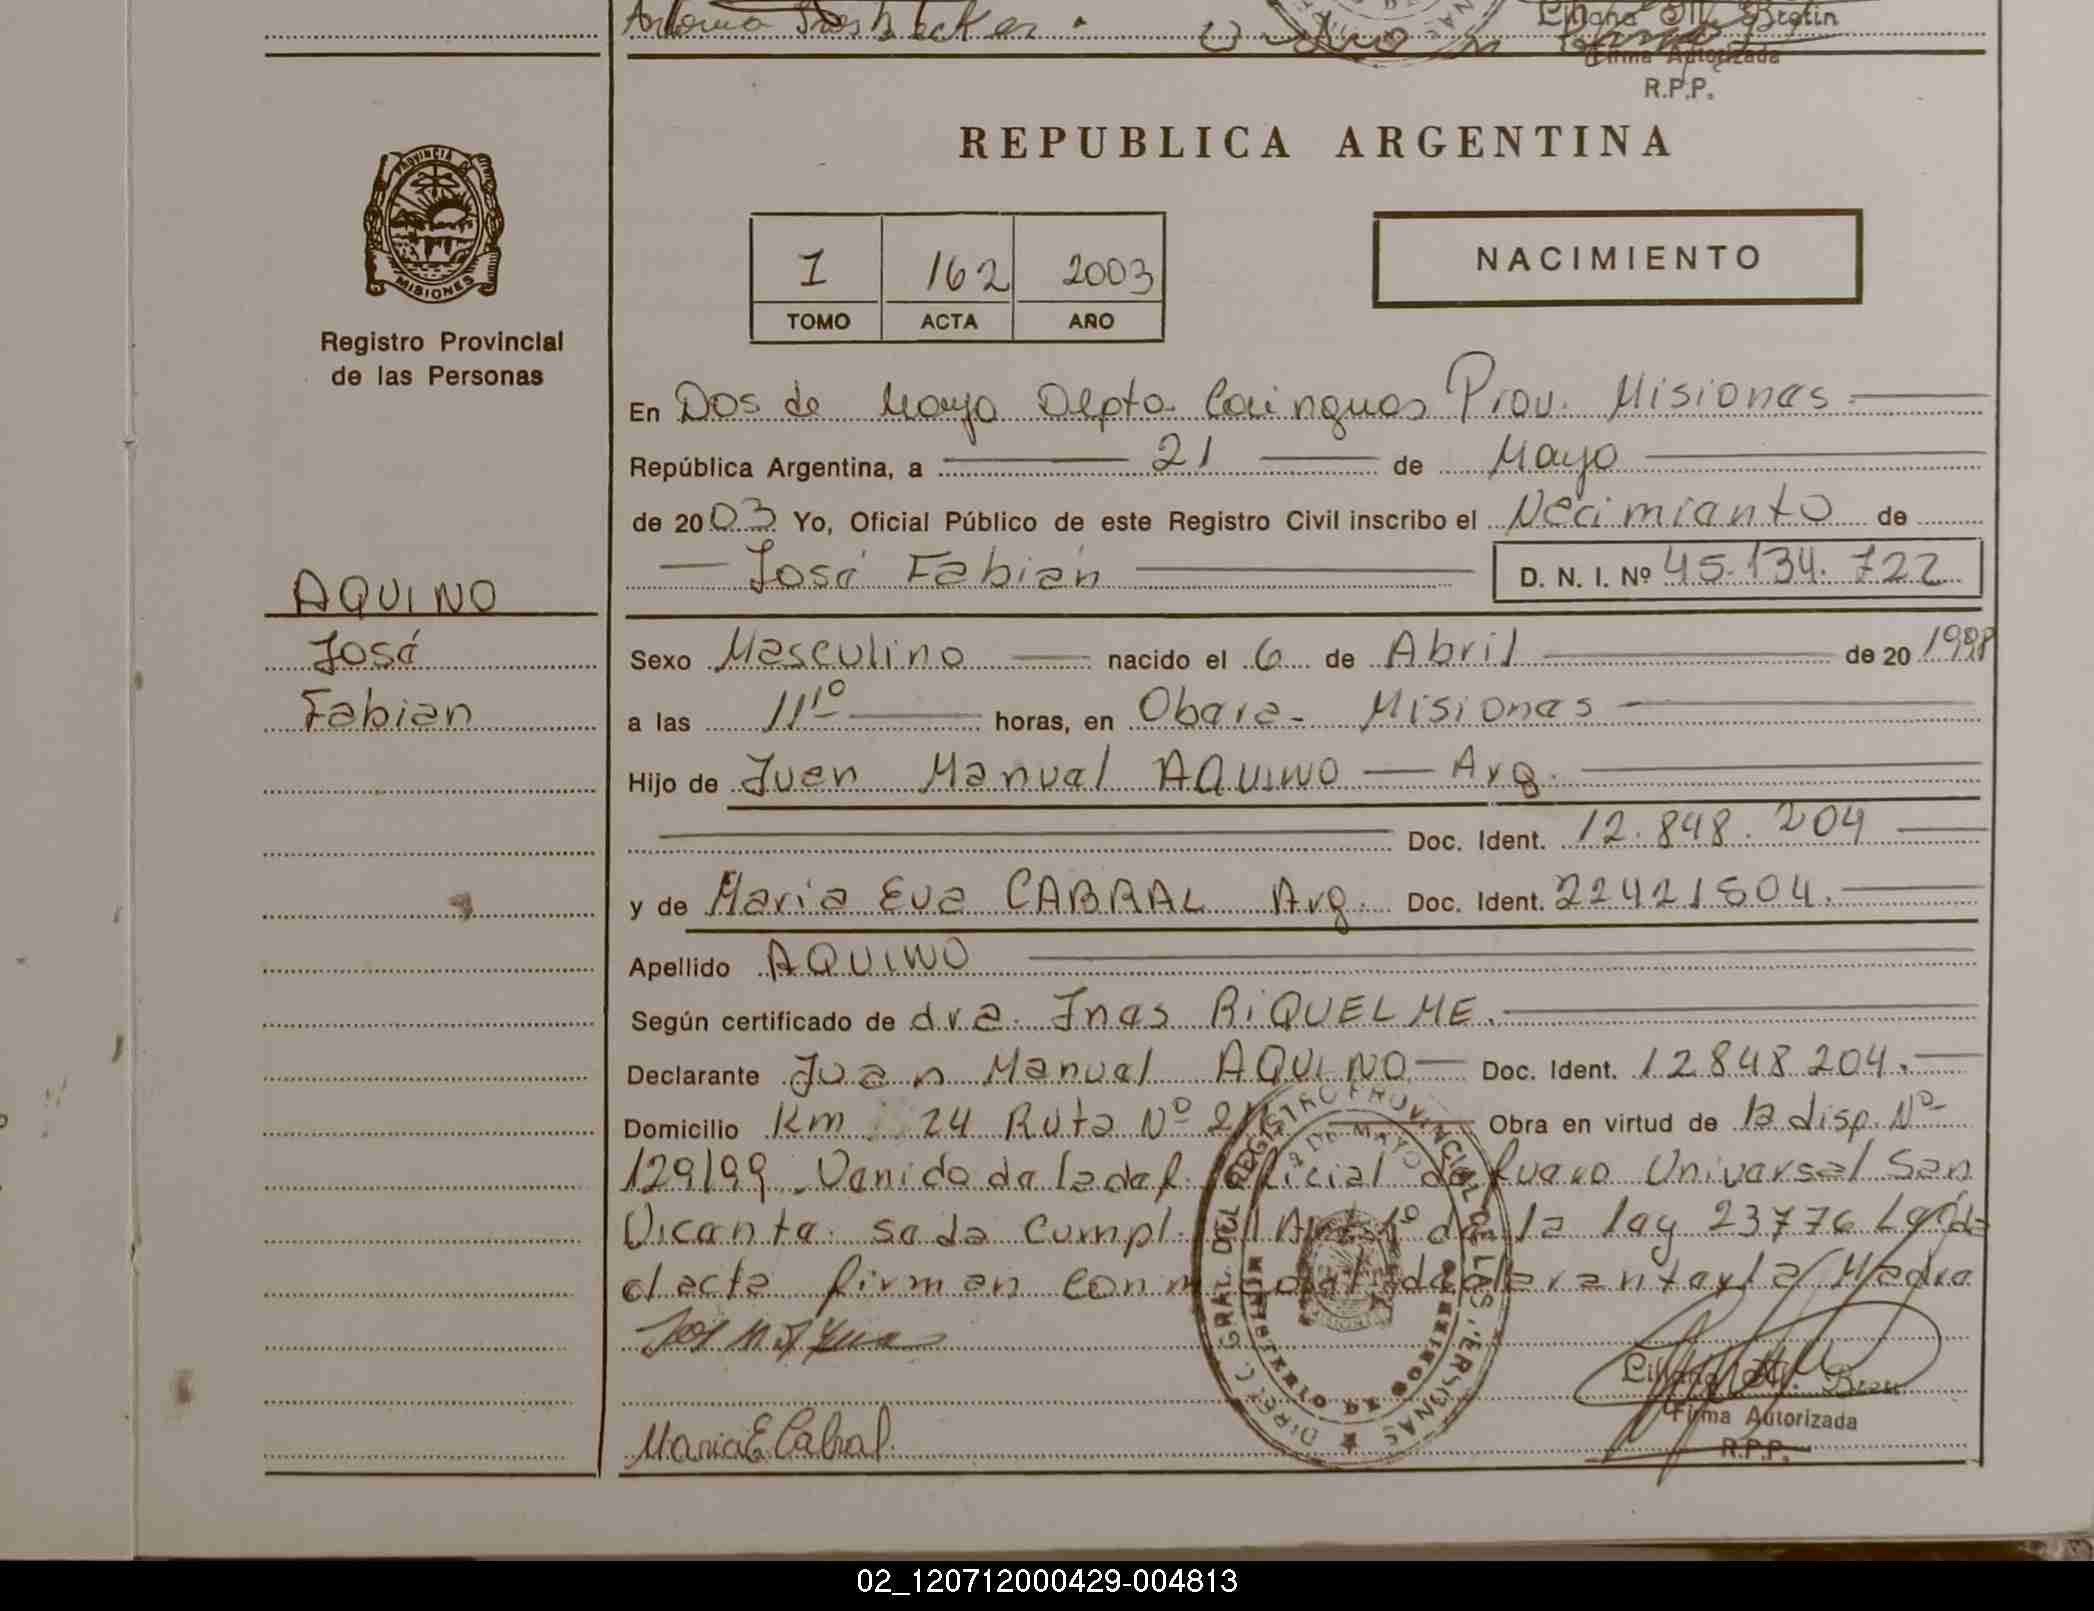 Liliana M. Bretin
Firma Autorizada
R.P.P.
REPUBLICA ARGENTINA
PROVINCIA DE
MISIONES
Registro Provincial
de las Personas
1 162 2003
TOMO ACTA AÑO
NACIMIENTO
En Dos de Mayo Depto Cainguas Prov. Misiones
República Argentina, a 21 de Mayo
de 2003 Yo, Oficial Público de este Registro Civil inscribo el Nacimiento de
José Fabián D. N. I. Nº 45.134.722
AQUINO
José
Fabian
Sexo Masculino nacido el 6 de Abril de 20 1998
a las 11º horas, en Obera - Misiones
Hijo de Juan Manuel AQUINO — Arg.
Doc. Ident. 12.848.204
y de Maria Eva CABRAL Arg. Doc. Ident. 22421504.
Apellido AQUINO
Según certificado de dra. Ines RIQUELME.
Declarante Juan Manuel AQUINO — Doc. Ident. 12848204.
Domicilio Km 24 Ruta Nº Obra en virtud de la disp. Nº
129/99 Venido de la def. oficial de fuero Universal San
Vicente se da cumpl. Art 1º de la ley 23776
el acta firman conmigo el declarante y la Madre
Maria E Cabral
DIRECC. GRAL. DEL REGISTRO PROVINCIAL DE LAS PERSONAS
2 DE MAYO
MISIONES
Firma Autorizada
R.P.P.
02_120712000429-004813